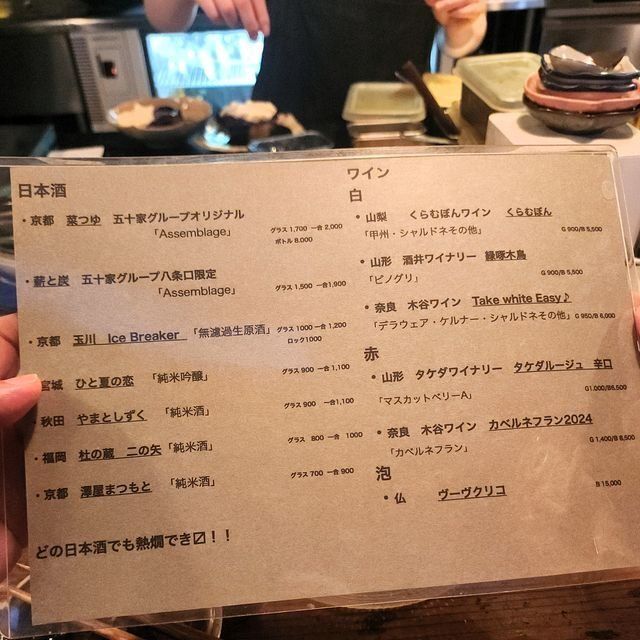 日本酒
・京都 菜つゆ 五十家グループオリジナル
「Assemblage」 グラス 1,700 一合 2,000
ボトル 8,000
・薪と炭 五十家グループ八条口限定
「Assemblage」 グラス 1,500 一合 1,900
・京都 玉川 Ice Breaker 「無濾過生原酒」 グラス 1000 一合 1,200
ロック1000
・宮城 ひと夏の恋 「純米吟醸」 グラス 900 一合 1,100
・秋田 やまとしずく 「純米酒」 グラス 900 一合1,100
・福岡 杜の蔵 二の矢 「純米酒」 グラス 800 一合 1000
・京都 澤屋まつもと 「純米酒」 グラス 700 一合 900
どの日本酒でも熱燗でき〼！！
ワイン
白
・山梨 くらむぼんワイン くらむぼん
「甲州・シャルドネその他」 G 900/B 5,500
・山形 酒井ワイナリー 緑啄木鳥
「ピノグリ」 G 900/B 5,500
・奈良 木谷ワイン Take white Easy♪
「デラウェア・ケルナー・シャルドネその他」 G 950/B 6,000
赤
・山形 タケダワイナリー タケダルージュ 辛口
「マスカットベリーA」 G1,000/B6,500
・奈良 木谷ワイン カベルネフラン2024
「カベルネフラン」 G 1,400/B 8,500
泡
・仏 ヴーヴクリコ B 15,000